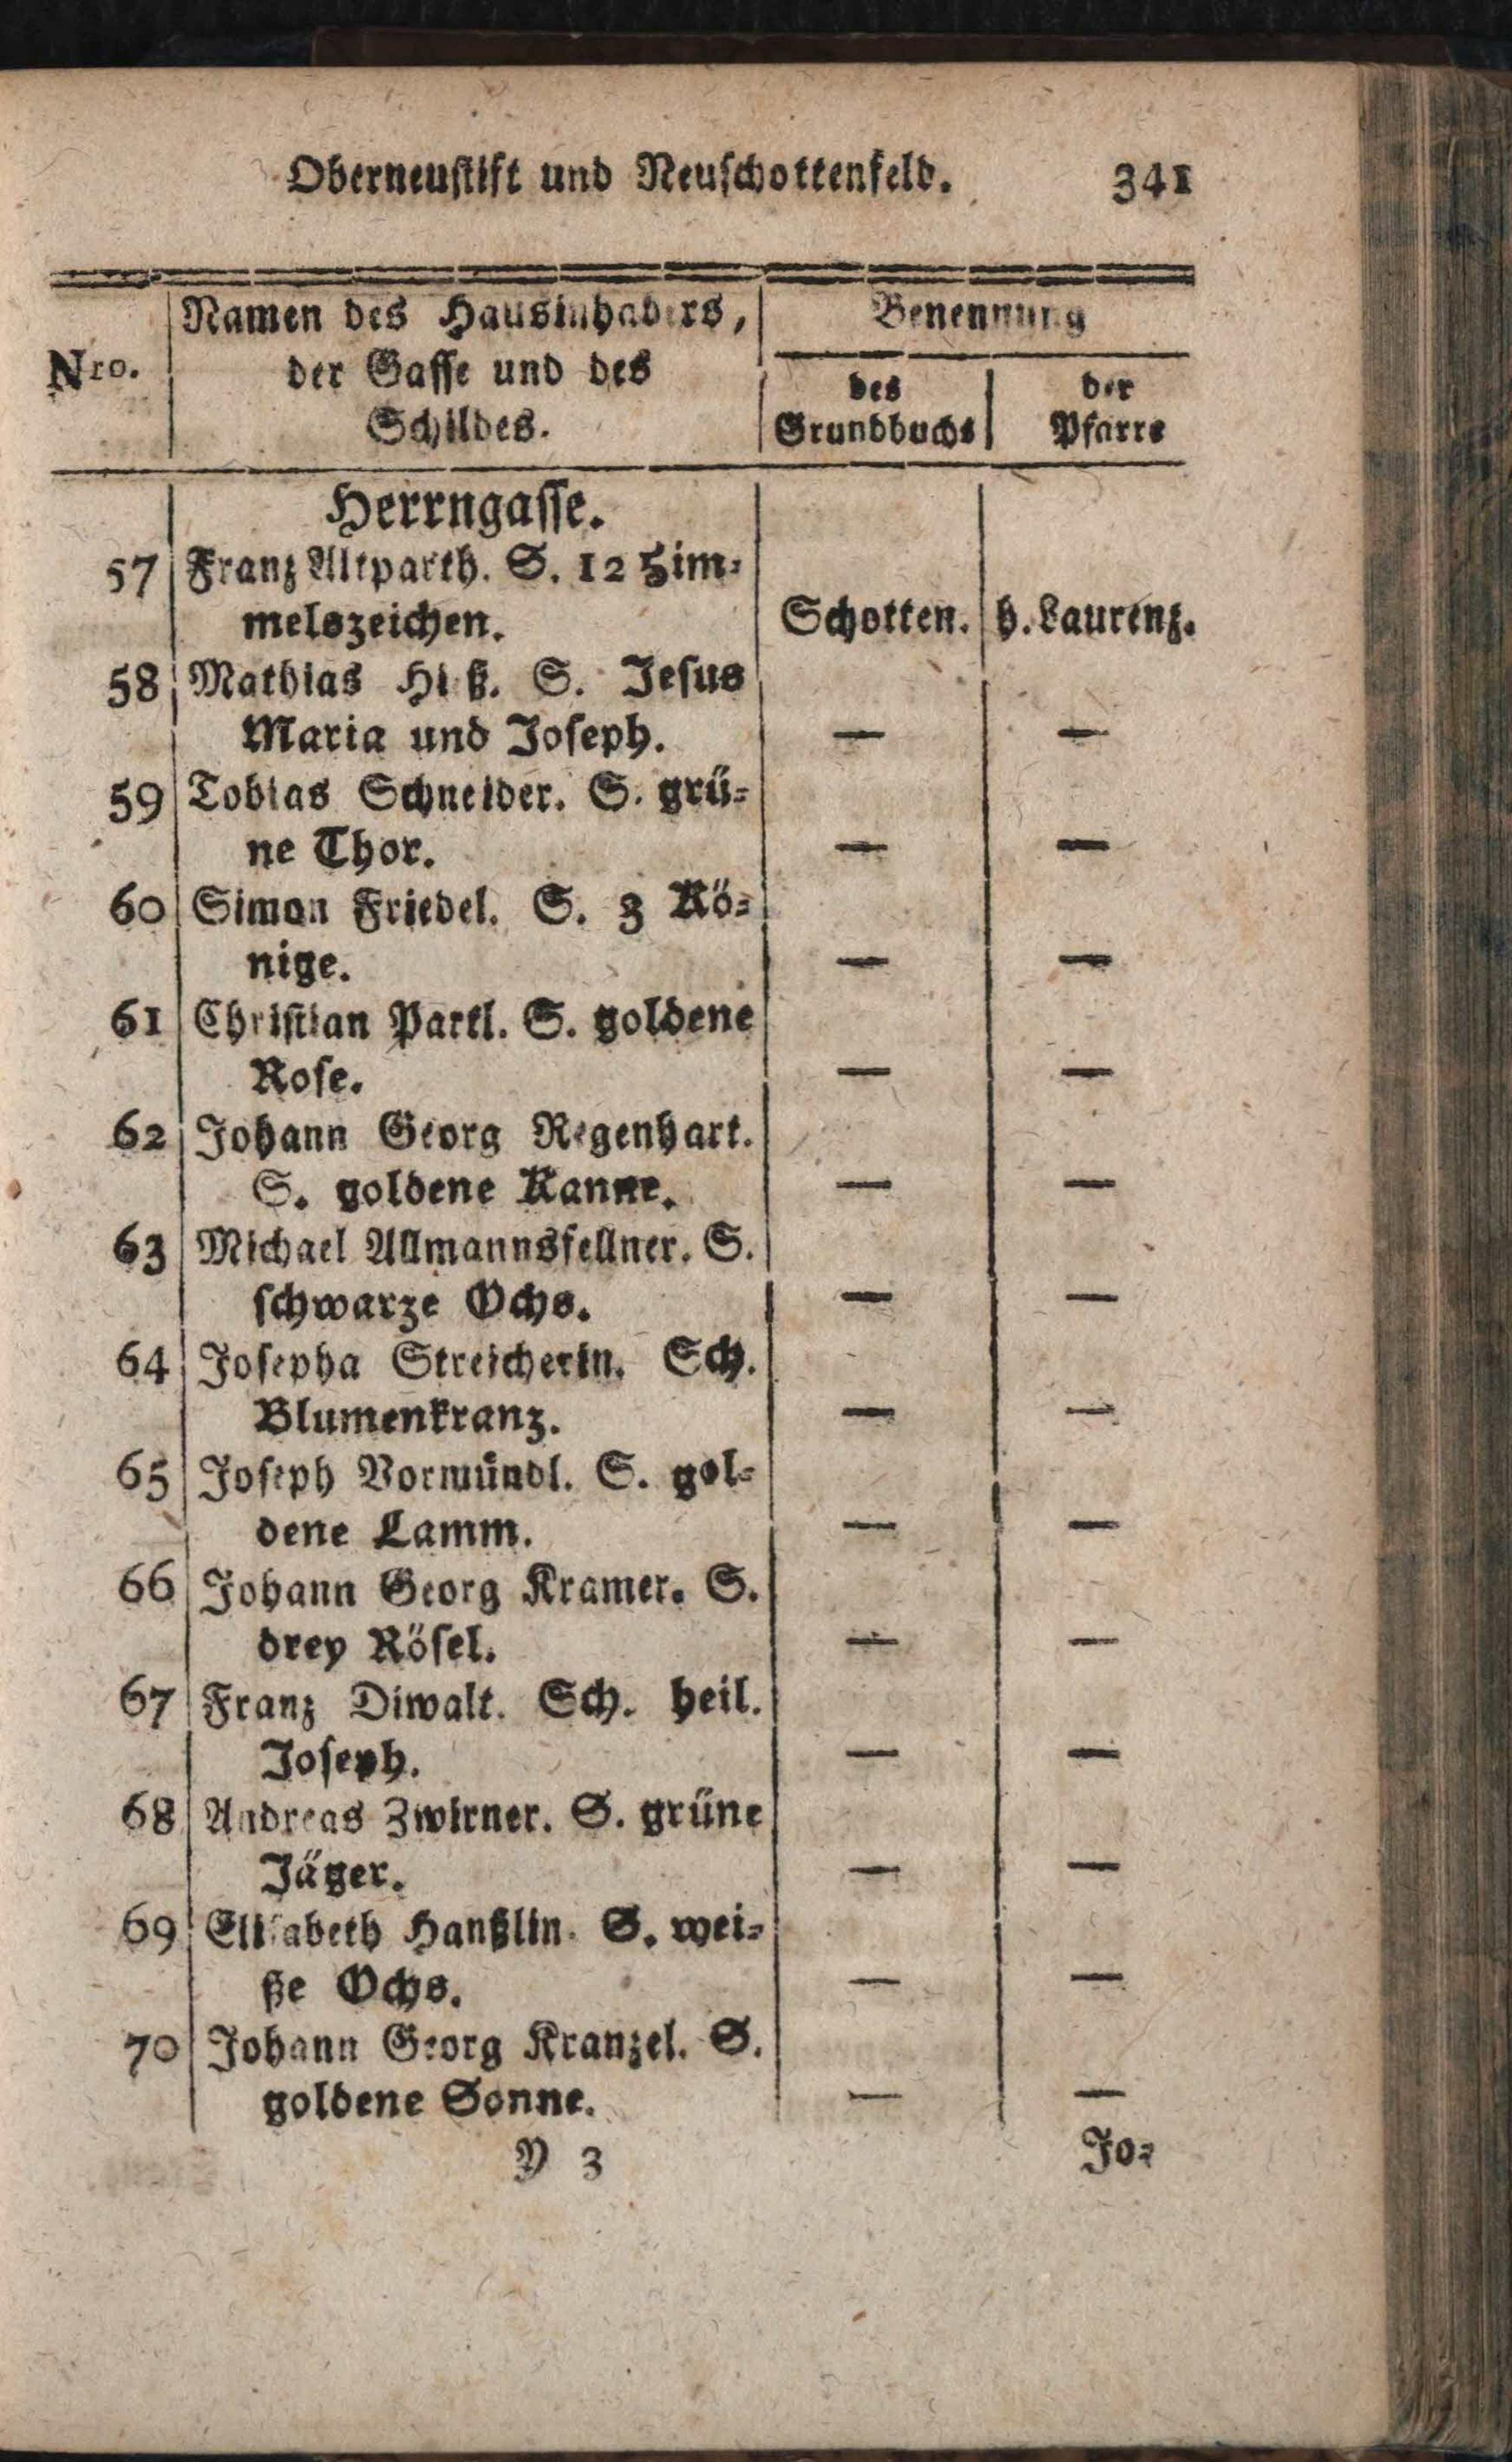 Oberneustift und Neuschottenfeld. 341
Nro.
Namen des Hausinhabers,
der Gasse und des
Schildes.
Benennung
des
Grundbuchs
der
Pfarre
Herrngasse.
57 Franz Altparth. S. 12 Him-
melszeichen. Schotten. h. Laurenz.
58 Mathias S. Jesus
Maria und Joseph. — —
59 Tobias Schneider. S. grü-
ne Thor. — —
60 Simon Friedel. S. 3 Kö-
nige. — —
61 Christian Partl. S. goldene
Rose. — —
62 Johann Georg Regenhart.
S. goldene Kanne. — —
63 Michael Allmannsfellner. S.
schwarze Ochs. — —
64 Josepha Streicherin. Sch.
Blumenkranz. — —
65 Joseph Vormündl. S. gol-
dene Lamm. — —
66 Johann Georg Kramer. S.
drey Rösel. — —
67 Franz Diwalt. Sch. heil.
Joseph. — —
68 Andreas Zwirner. S. grüne
Jäger. — —
69 Elisabeth Hanßlin. S. wei-
ße Ochs. — —
70 Johann Georg Kranzel. S.
goldene Sonne. — —
Y 3 Jo-